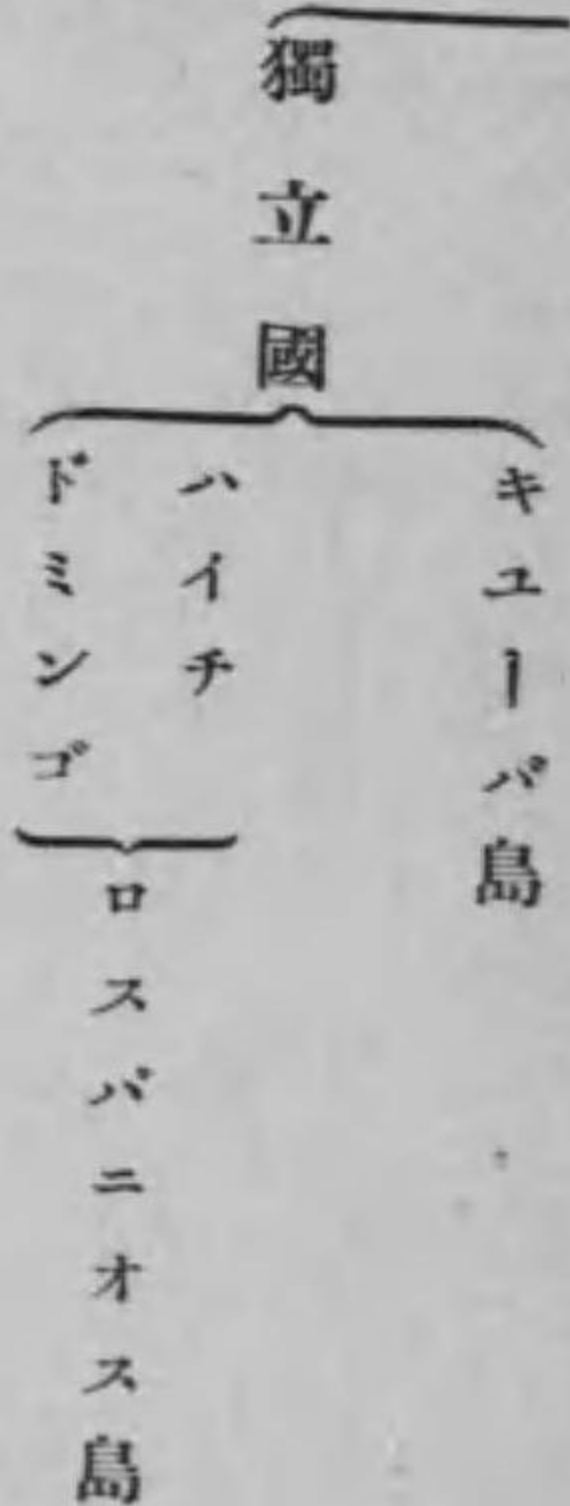 獨立國
キユーパ島
ハイチ
ドミンゴ
ロスパニオス島